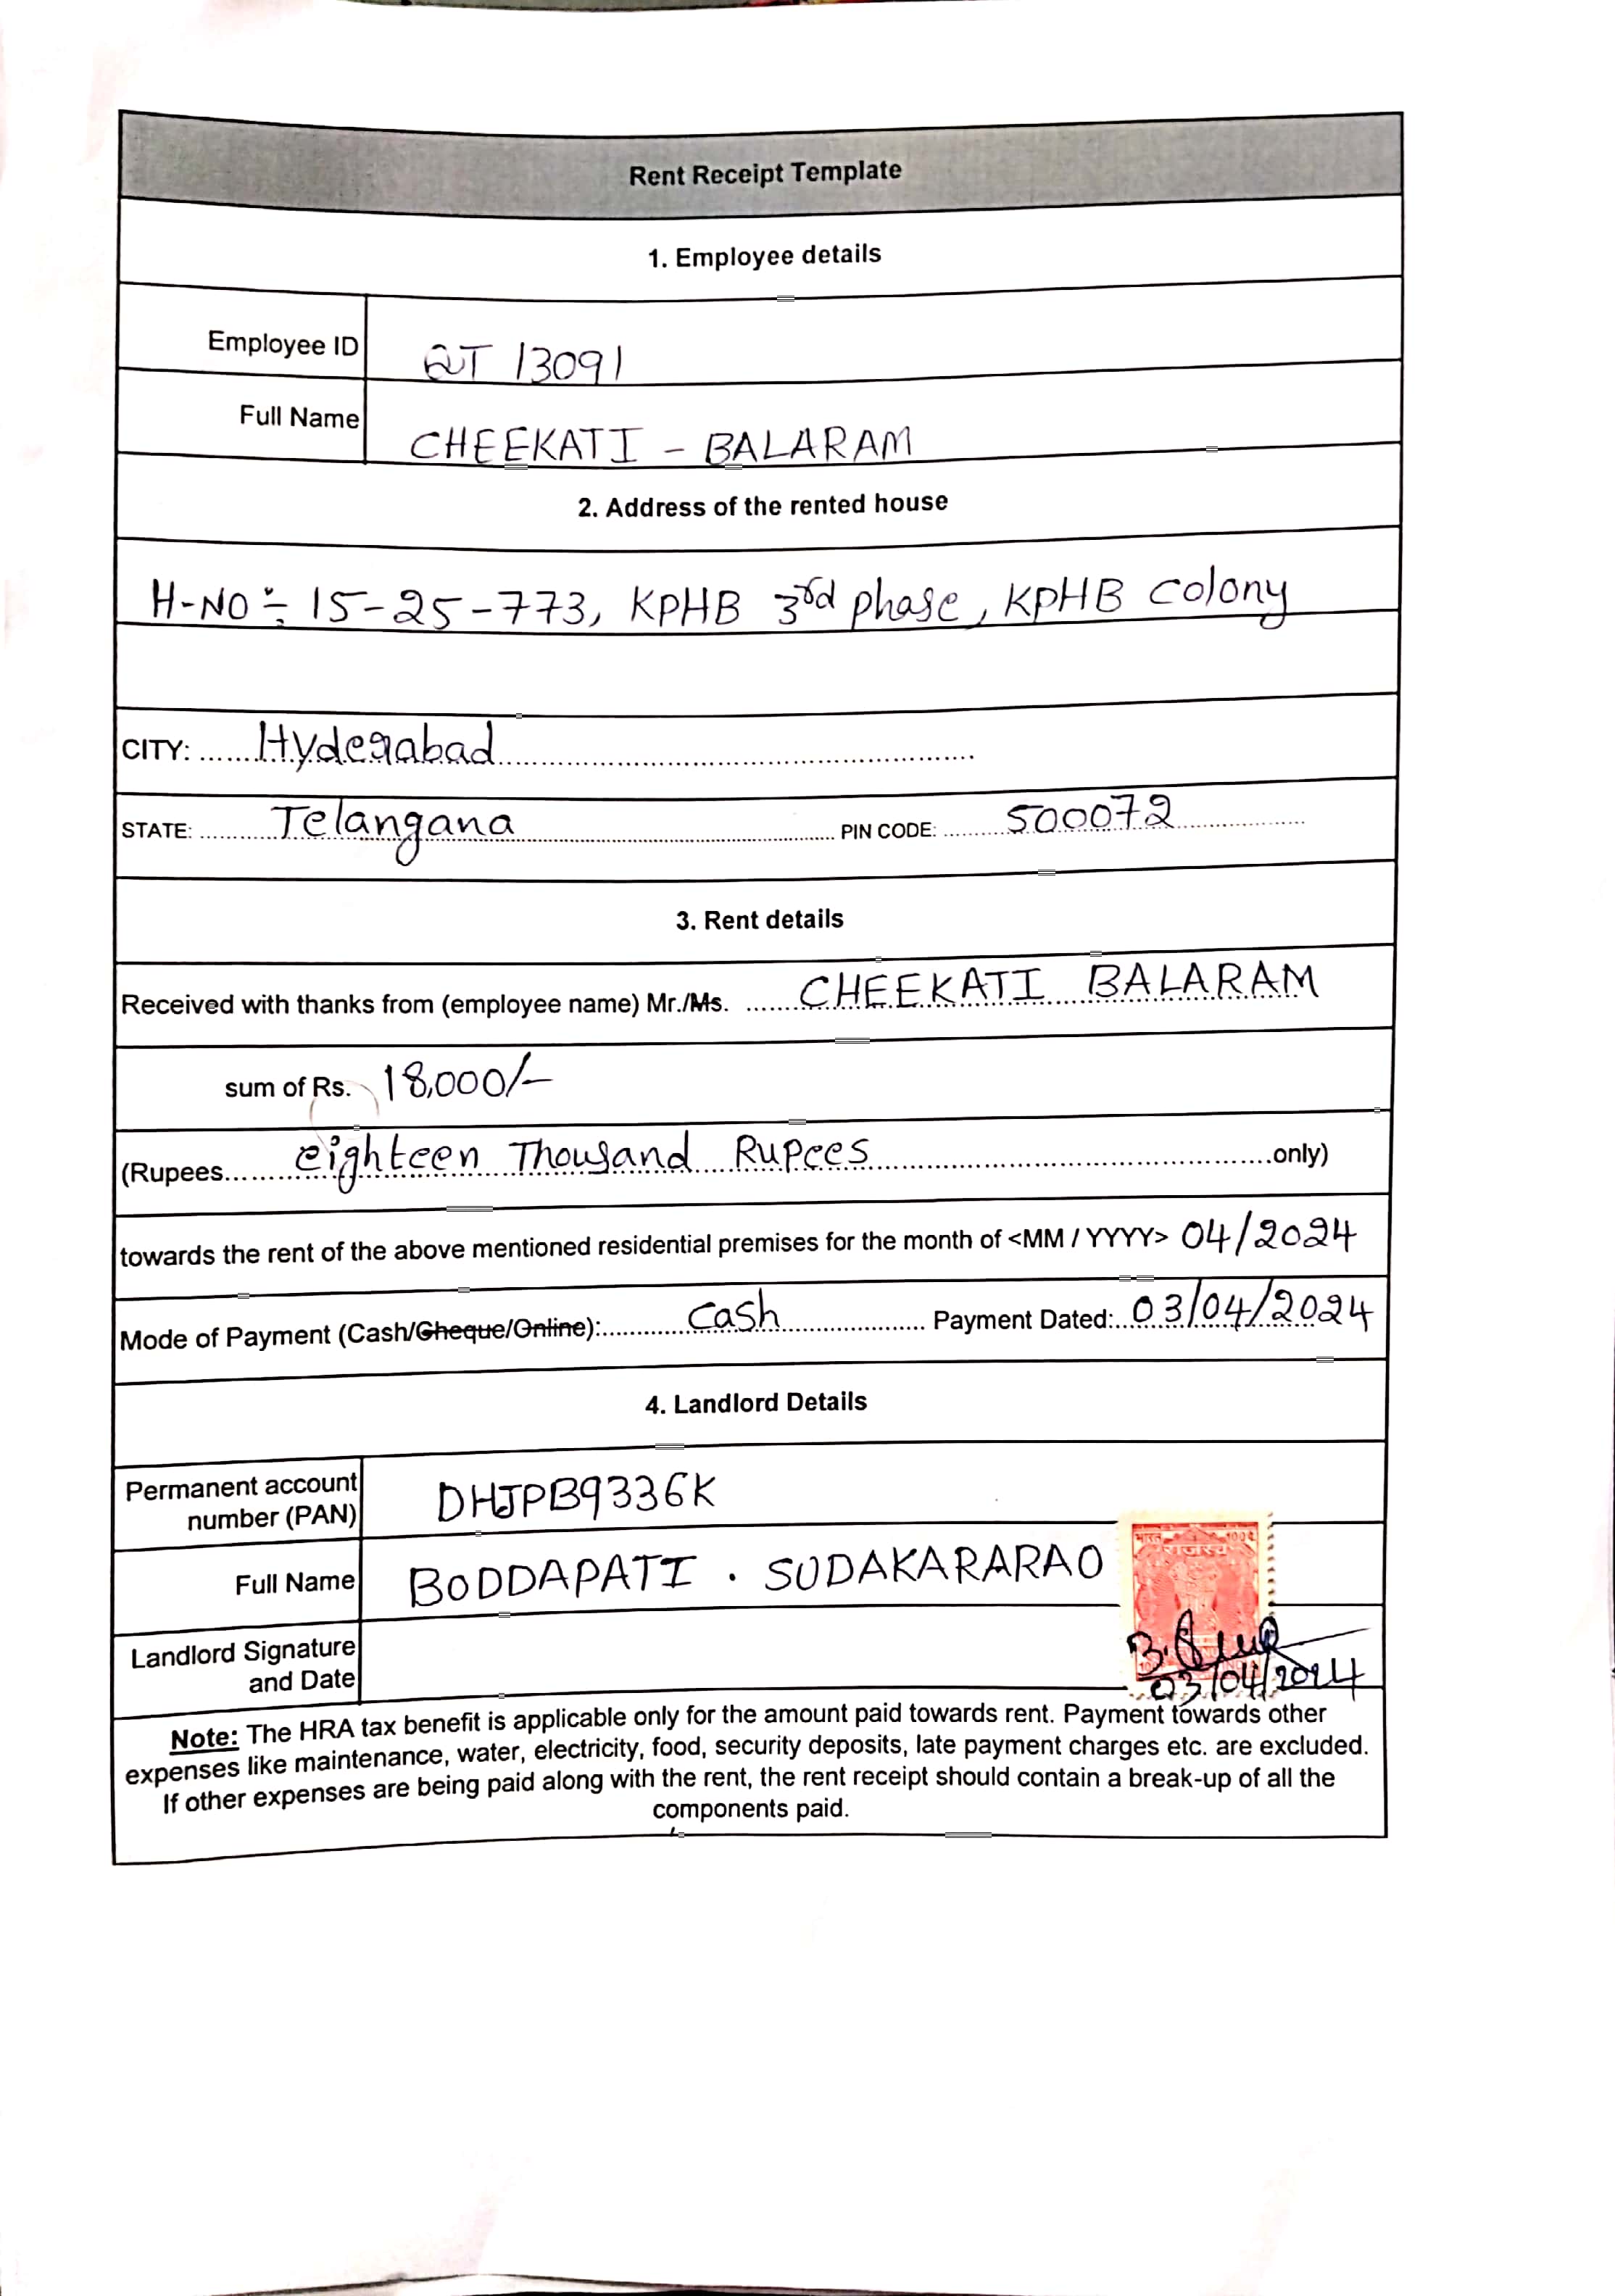 Rent Receipt Template
1. Employee details
Employee ID QT 13091
Full Name CHEEKATI - BALARAM
2. Address of the rented house
H-NO:- 15-25-773, KPHB 3rd phase, KPHB colony
CITY: Hyderabad
STATE: Telangana PIN CODE: 500072
3. Rent details
Received with thanks from (employee name) Mr./Ms. CHEEKATI BALARAM
sum of Rs. 18,000/-
(Rupees eighteen Thousand Rupees only)
towards the rent of the above mentioned residential premises for the month of <MM / YYYY> 04/2024
Mode of Payment (Cash/Cheque/Online): cash Payment Dated: 03/04/2024
4. Landlord Details
Permanent account
number (PAN) DHJPB9336K
Full Name BODDAPATI . SUDAKARARAO
भारत
राजस्व
Landlord Signature
and Date
03/04/2024
Note: The HRA tax benefit is applicable only for the amount paid towards rent. Payment towards other
expenses like maintenance, water, electricity, food, security deposits, late payment charges etc. are excluded.
If other expenses are being paid along with the rent, the rent receipt should contain a break-up of all the
components paid.